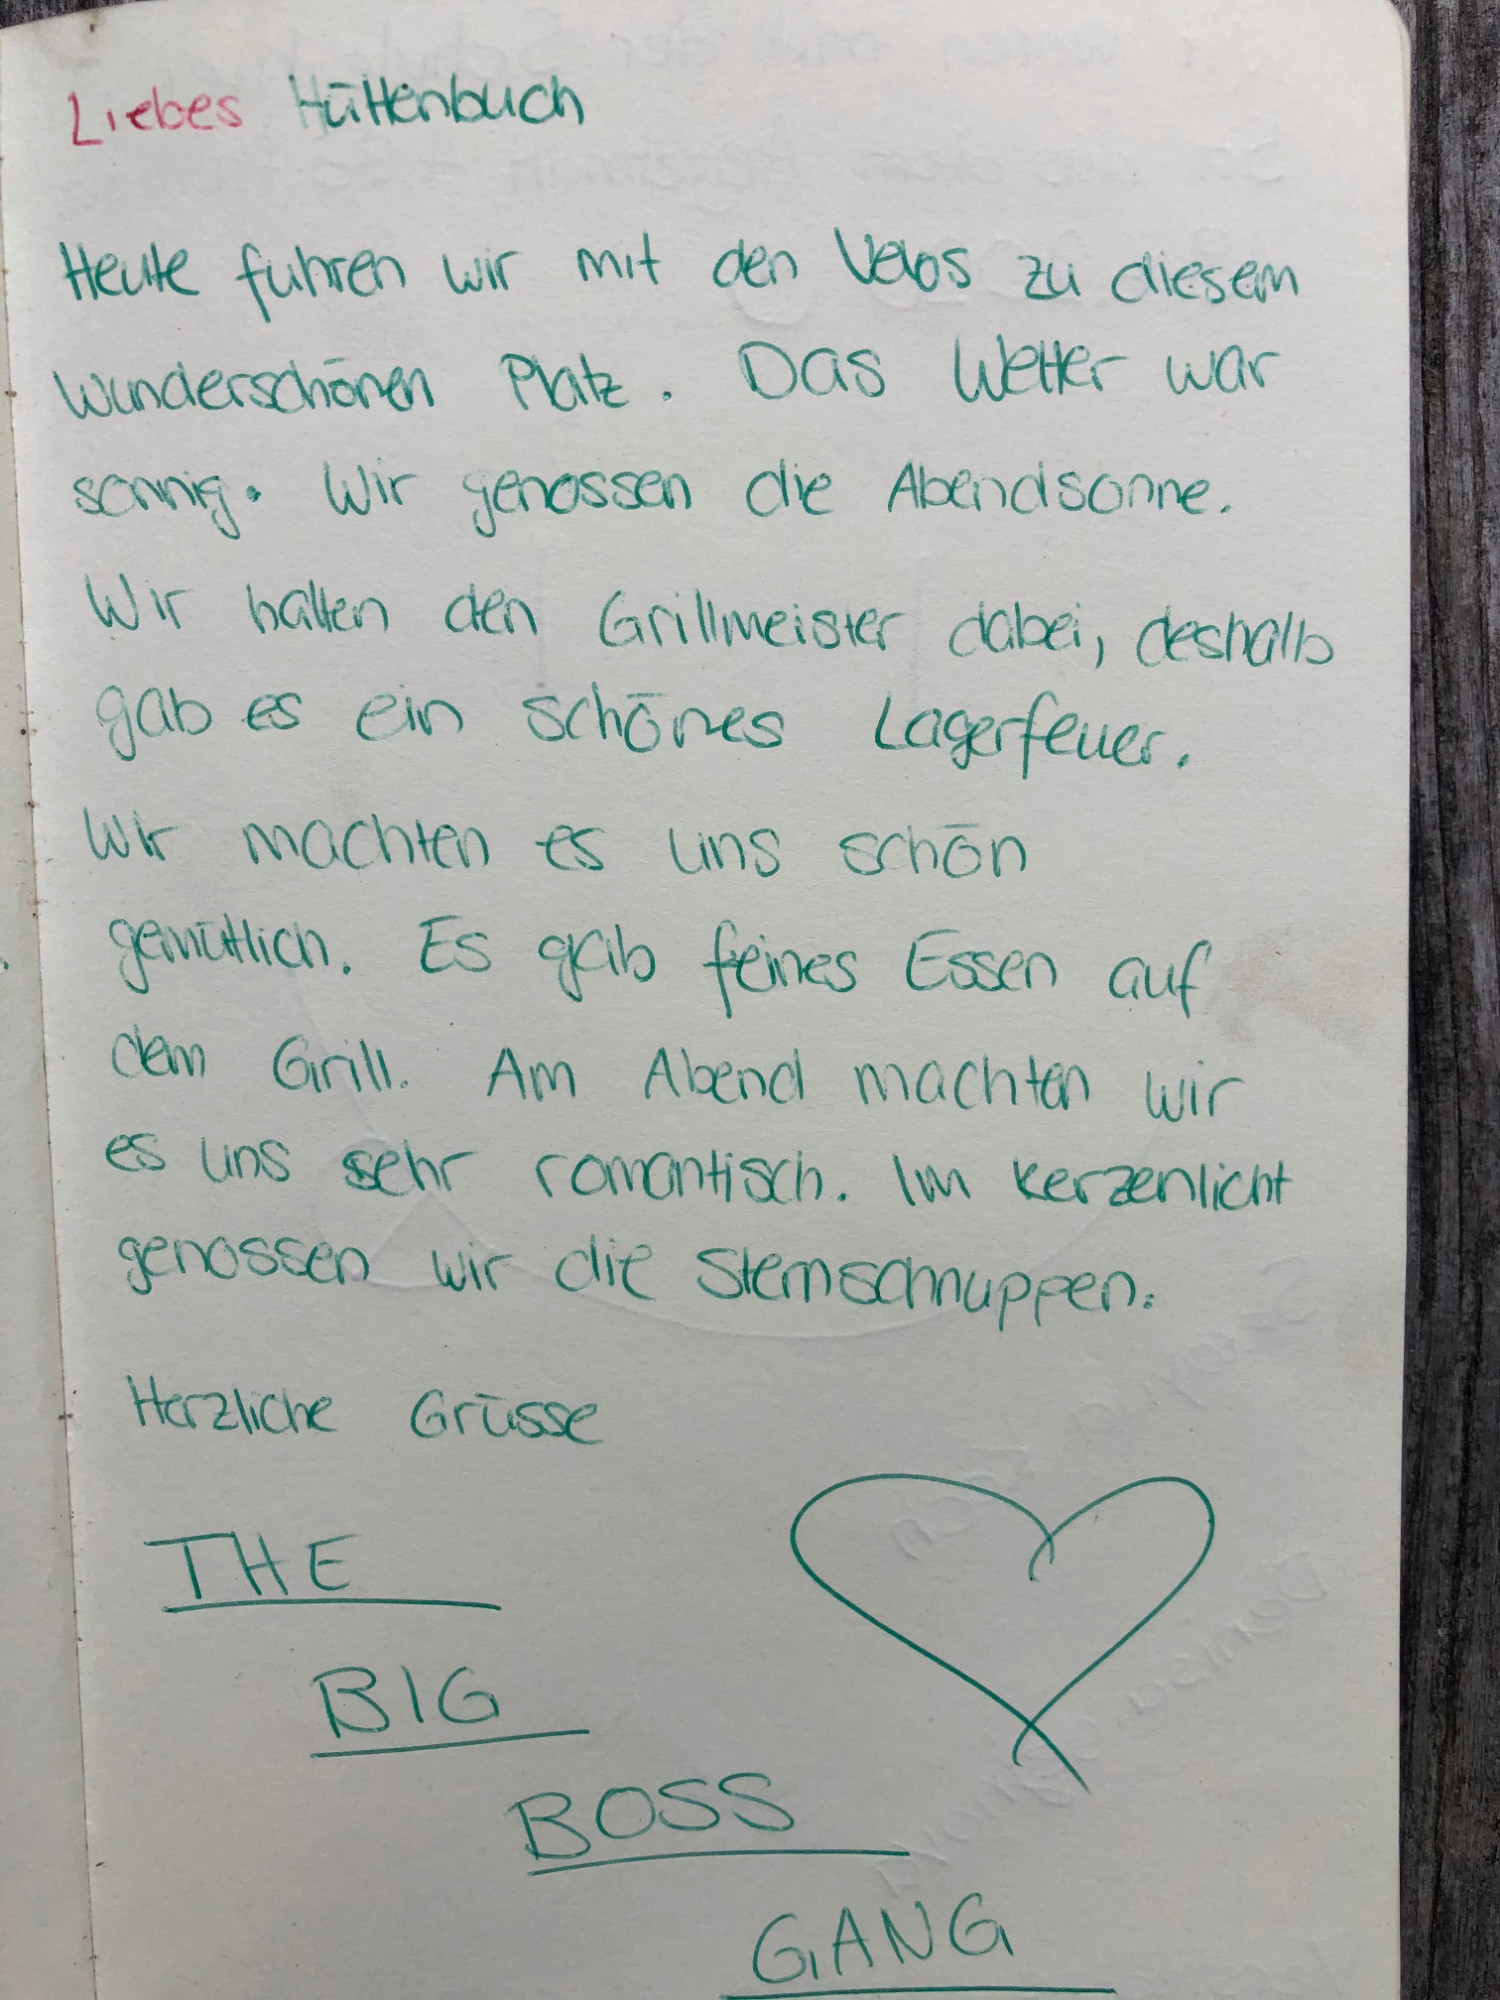 Liebes Hüttenbuch
Heute fuhren wir mit den Velos zu diesem
wunderschönen Platz. Das Wetter war
sonnig. Wir genossen die Abendsonne.
Wir hatten den Grillmeister dabei, deshalb
gab es ein schönes Lagerfeuer.
Wir machten es uns schön
gemütlich. Es gab feines Essen auf
dem Grill. Am Abend machten wir
es uns sehr romantisch. Im Kerzenlicht
genossen wir die Sternschnuppen.
Herzliche Grüsse
THE
BIG
BOSS
GANG